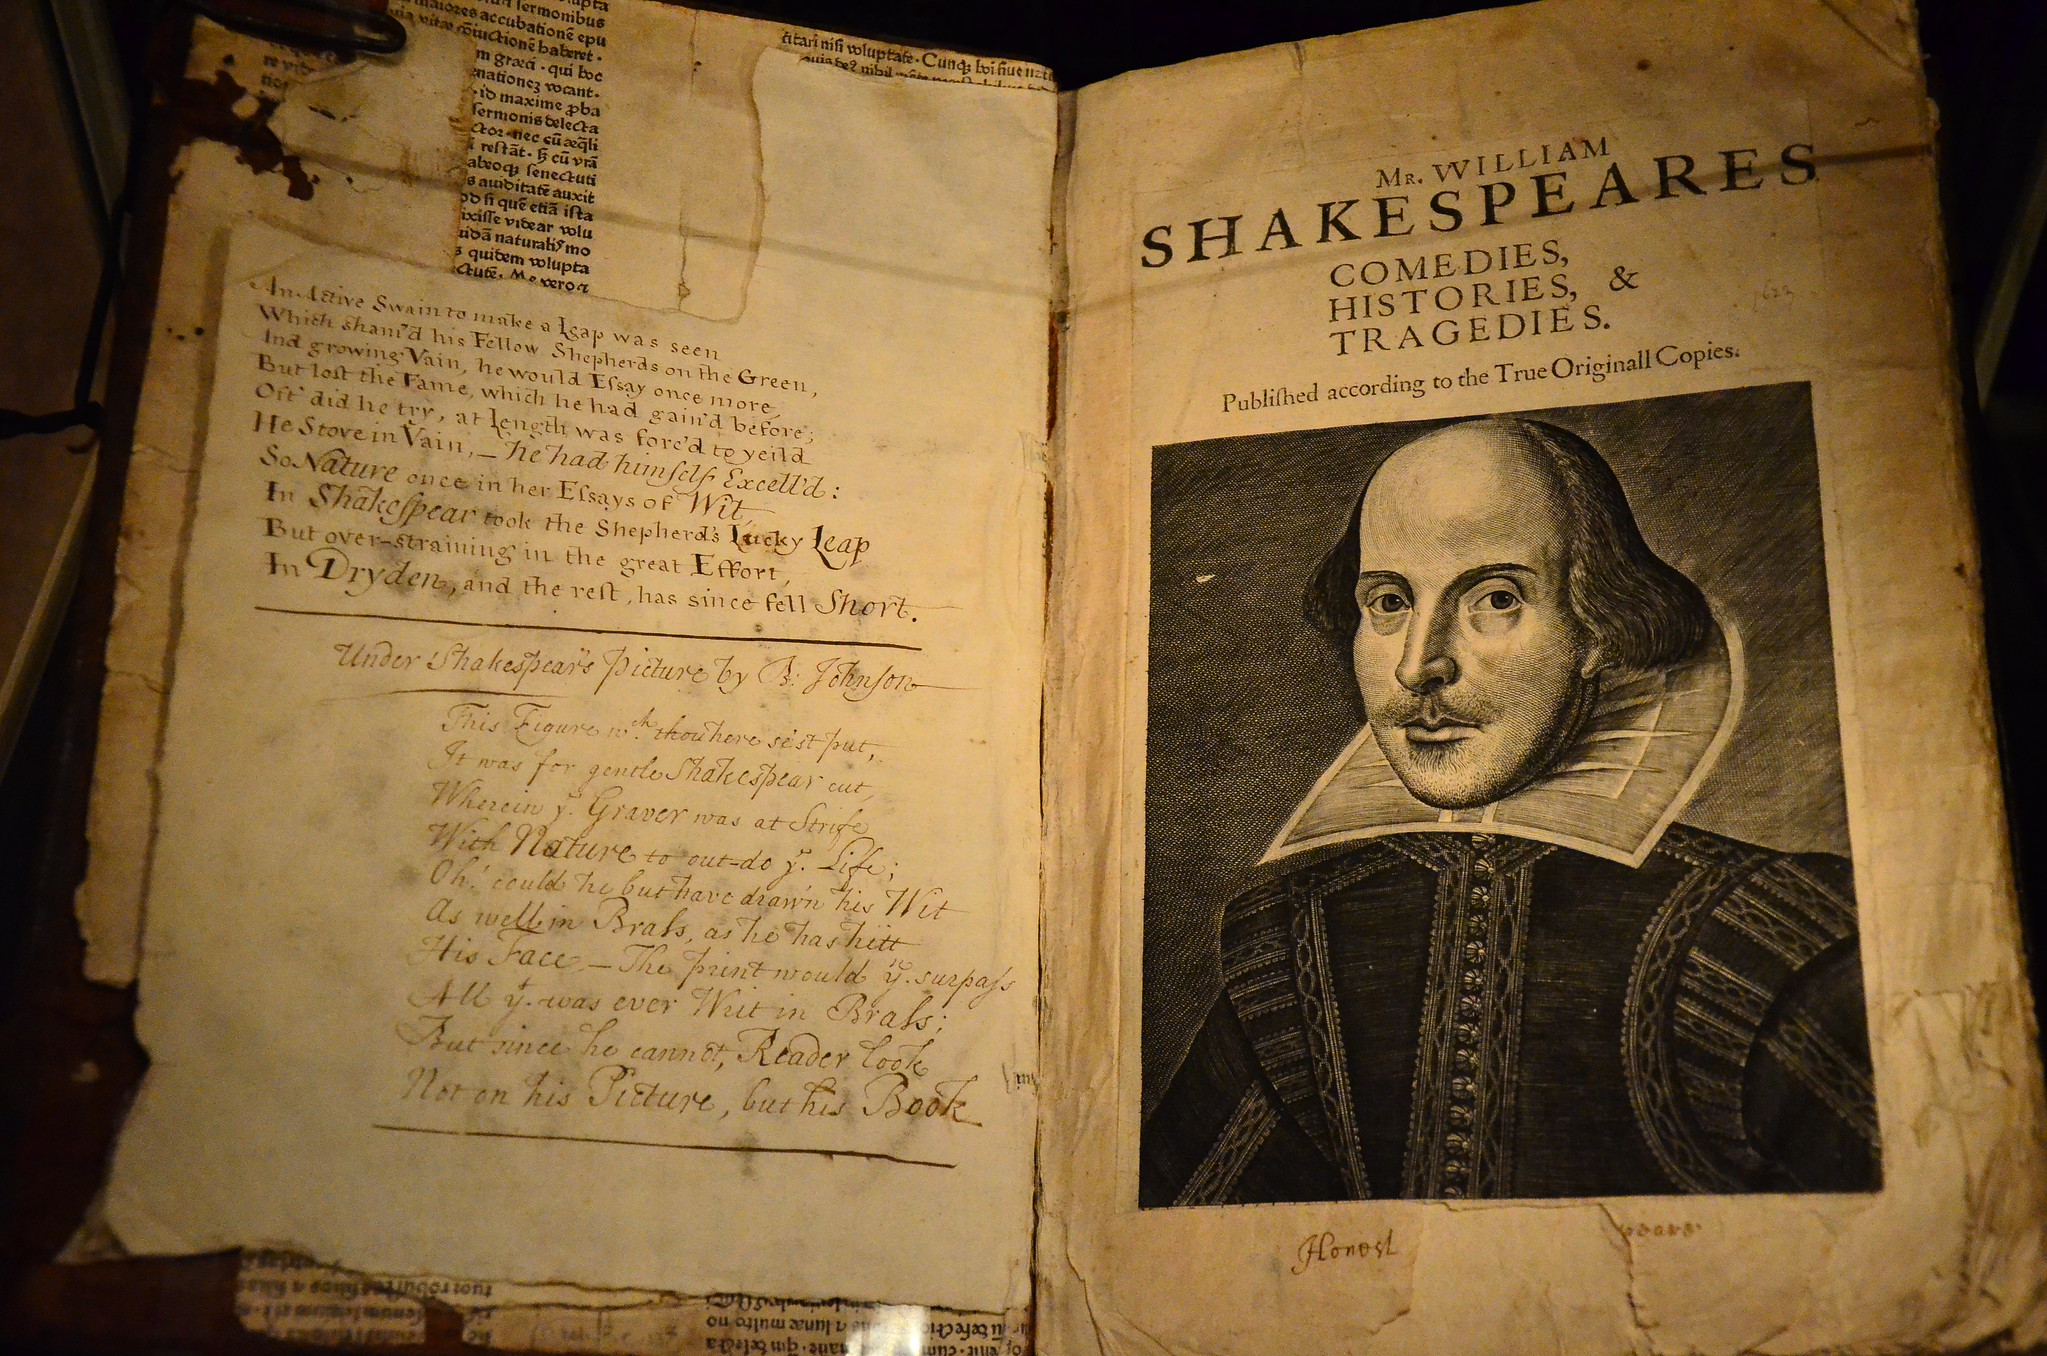 sermonibus
maiores accubationē epu
uia vitæ cōiunctionē haberet ·
m græci · qui hoc
enationeꝫ vocant ·
· id maxime ꝓba
sermonis delecta
ctor · nec cū æq̄li
i restāt · ꝫ cū vrā
abeoqꝫ senectuti
s auiditatē auxit
od si quē etiā ista
ixisse videar volu
uidā naturalis mo
ꝫ quidem volupta
ctutē. Me vero
titari nisi voluptate · Cunqꝫ boi siue
An Active Swain to make a Leap was seen
Which sham'd his Fellow Shepherds on the Green,
And growing Vain, he would Eſsay once more,
But lost the Fame, which he had gain'd before;
Oft' did he try, at Length was forc'd to yeild
He Strove in Vain, – he had himſelf Excell'd:
So Nature once in her Eſsays of Wit,
In Shakeſpear took the Shepherd's Lucky Leap
But over-straining in the great Effort,
In Dryden, and the reſt, has since fell Short.
Under Shakespear's Picture by B: Johnſon
This Figure wch. thou here se'st put,
It was for gentle Shakespear cut,
Wherein ye. Graver was at Strife
With Nature to out-do ye. Life;
Oh! could he but have drawn his Wit
As well in Braſs, as he has hitt
His Face. – The print would yn. surpaſs
All yt. was ever Writ in Braſs;
But since he cannot, Reader look
Not on his Picture, but his Book
Mr. WILLIAM
SHAKESPEARES
COMEDIES,
HISTORIES, &
TRAGEDIES.
Publiſhed according to the True Originall Copies.
1622
Honest